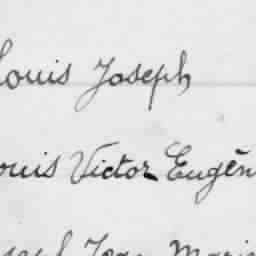 Louis Joseph
ouis Victor Eugèn
seph Jean Marie